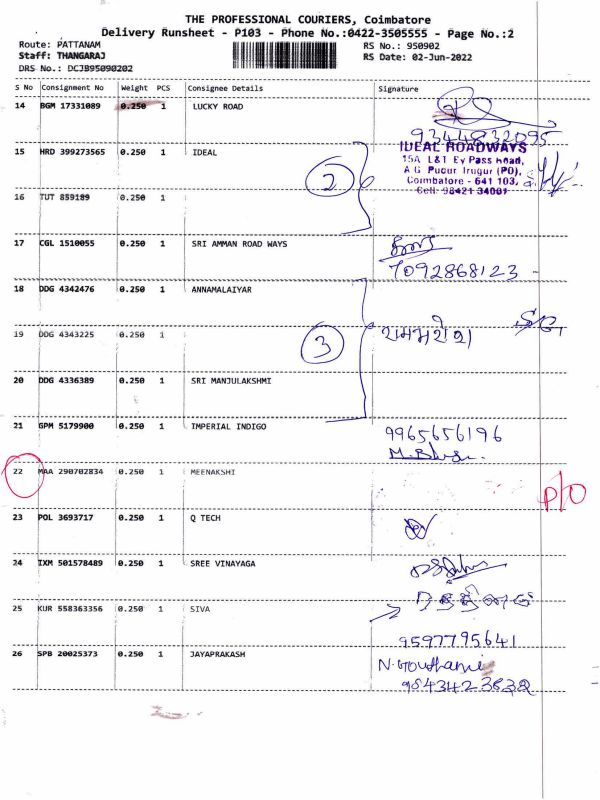 THE PROFESSIONAL COURIERS, Coimbatore
Delivery Runsheet - P103 - Phone No.:0422-3505555 - Page No.:2
Route: PATTANAM RS No.: 950902
Staff: THANGARAJ RS Date: 02-Jun-2022
DRS No.: DCJB95090202
S No Consignment No Weight PCS Consignee Details Signature
14 BGM 17331089 0.250 1 LUCKY ROAD
9344832095
15 HRD 399273565 0.250 1 IDEAL
IDEAL ROADWAYS
15A L&T By Pass Road,
A G Pudur Irugur (PO),
Coimbatore - 641 103,
Cell: 98421 34001
2
16 TUT 859189 0.250 1
17 CGL 1510055 0.250 1 SRI AMMAN ROAD WAYS
7092868123
18 DDG 4342476 0.250 1 ANNAMALAIYAR
19 DDG 4343225 0.250 1
3
20 DDG 4336389 0.250 1 SRI MANJULAKSHMI
21 GPM 5179900 0.250 1 IMPERIAL INDIGO
9965656196
22 MAA 290702834 0.250 1 MEENAKSHI
P/O
23 POL 3693717 0.250 1 Q TECH
24 IXM 501578489 0.250 1 SREE VINAYAGA
25 KUR 558363356 0.250 1 SIVA
9597795641
26 SPB 20025373 0.250 1 JAYAPRAKASH